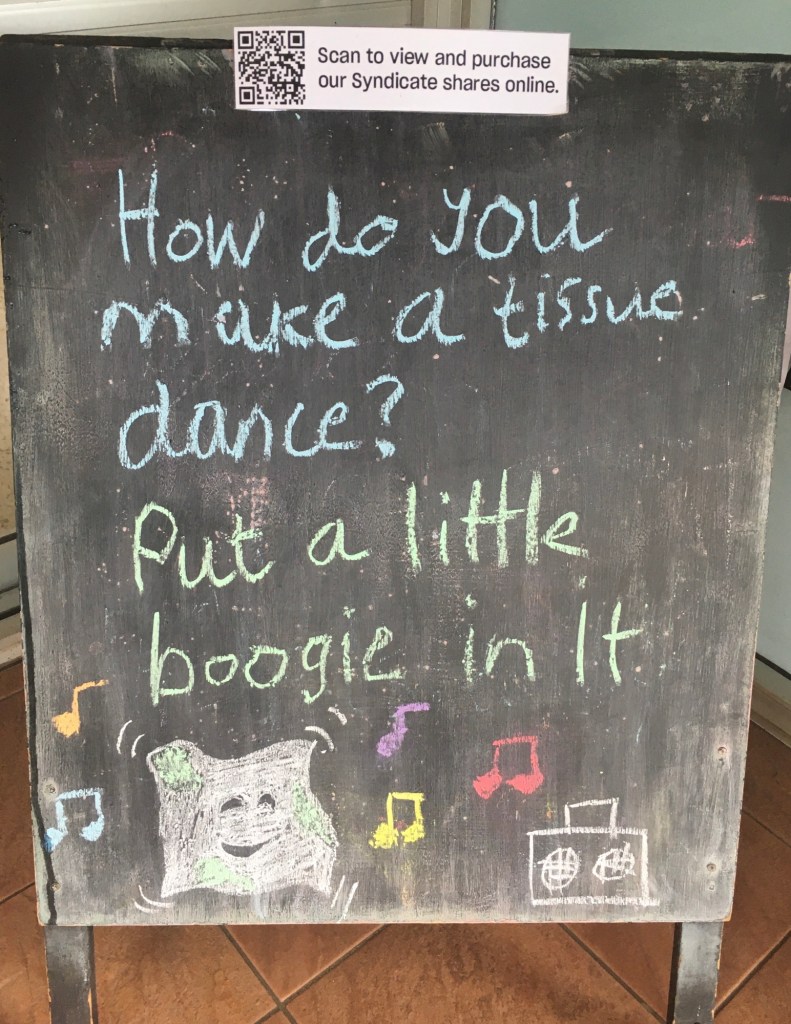 Scan to view and purchase
our Syndicate shares online.
How do you
make a tissue
dance?
Put a little
boogie in it